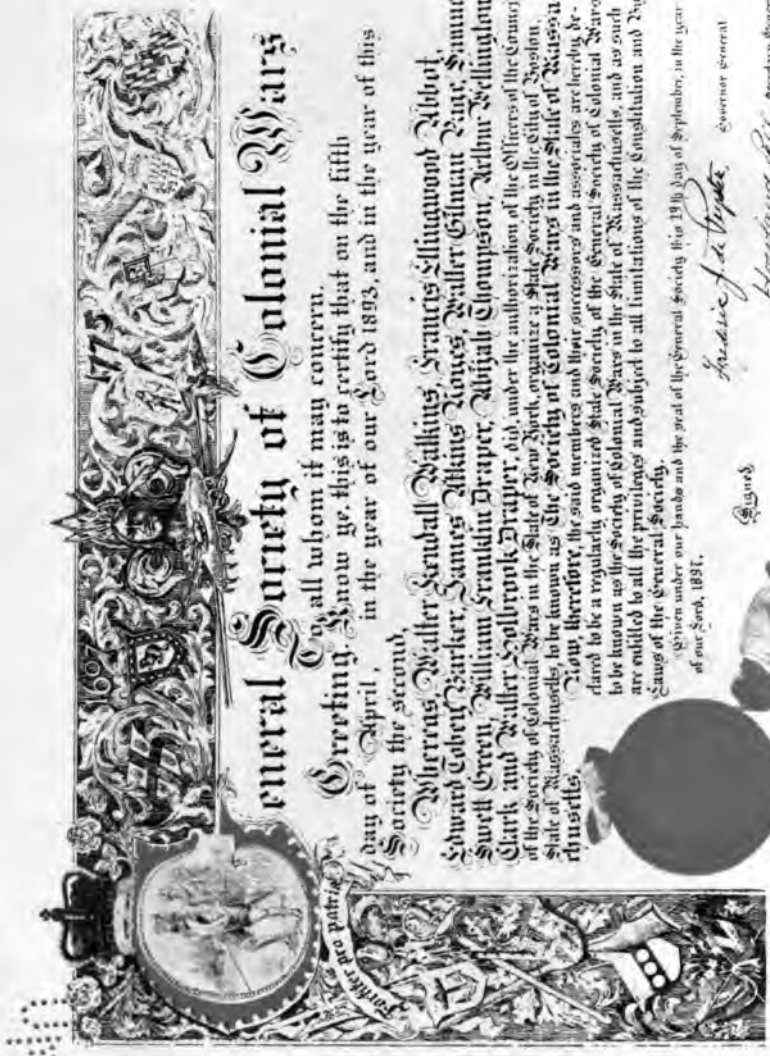 eneral Society of Colonial Wars
To all whom it may concern,
Greeting. Know ye, this is to certify that on the fifth
day of April, in the year of our Lord 1893, and in the year of this
Society the second,
Whereas Walter Kendall Watkins, Francis Ellingwood Abbot,
Edward Tobey Barker, James Atkins Noyes, Walter Gilman Page, Samuel
Swett Green, William Franklin Draper, Abijah Thompson, Arthur Wellington
Clark and Walter Holbrook Draper, did, under the authorization of the Officers of the Council
of the Society of Colonial Wars in the State of New York, organize a State Society in the City of Boston,
State of Massachusetts, to be known as The Society of Colonial Wars in the State of Massa-
chusetts,
Now, therefore, the said members and their successors and associates are hereby de-
clared to be a regularly organized State Society of the General Society of Colonial Wars
to be known as the Society of Colonial Wars in the State of Massachusetts, and as such
are entitled to all the privileges and subject to all limitations of the Constitution and By
Laws of the General Society.
Given under our hands and the seal of the General Society this 19th day of September, in the year
of our Lord, 1897.
Signed, Frederic J. de Peyster Governor General
Fortiter pro patria